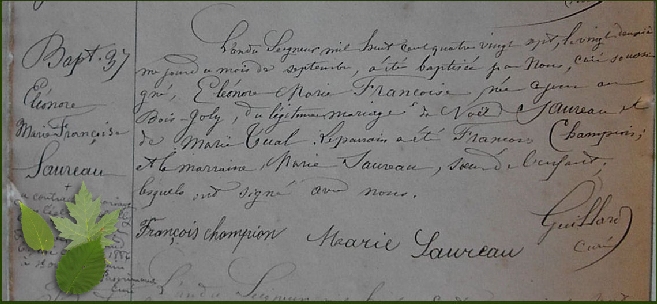 Bapt. 37
Eléonore
Marie Françoise
Saureau
L'an du Seigneur mil huit cent quatre vingt sept, le vingt deuxiè
me jour du mois de septembre, a été baptisée par Nous, curé soussi
gné, Eléonore Marie Françoise, née ce jour au
Bois-Joly, du légitime mariage de Noël Saureau et
de Marie Tual. Le parrain a été François Champion;
et la marraine Marie Saureau, sœur de l'enfant;
lesquels ont signé avec nous.
François Champion
Marie Saureau
Guillard
Curé
L'an du Seigneur